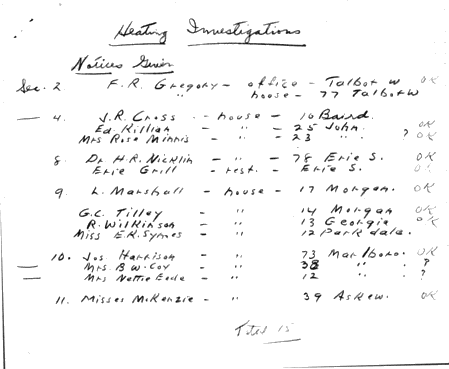 Heating Investigations
Notices Given
Sec. 2 F.R. Gregory - office - Talbot W OK
" house - 77 Talbot W
— 4. J.R. Cross - house - 10 Baird.
Ed. Killian - " - 25 John. OK
Mrs Rose Minnis - " - 23 " ? OK
8. Dr H.R. Nicklin - " - 78 Erie S. OK
Erie Grill - rest. - Erie S. OK
9. L. Marshall - house - 17 Morgan. OK
G.C. Tilley - " 14 Morgan OK
R. Wilkinson - " 13 Georgia OK
Miss E.R. Symes - " 12 Park dale.
10. Jos Harrison - " 73 Marlboro. OK
— Mrs. B.W. Cox - " 38 " . ?
— Mrs Nettie Eede - " 12 " . ?
11. Misses McKenzie - " 39 Askew. OK
Total 15